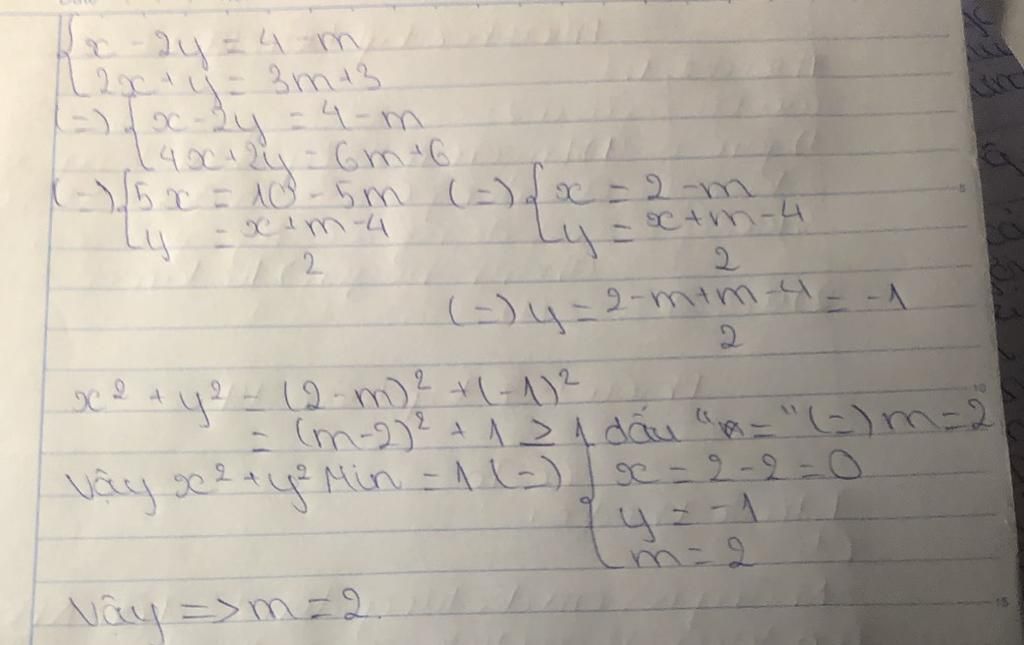 { x - 2y = 4 - m
2x + y = 3m + 3
(=) { x - 2y = 4 - m
4x + 2y = 6m + 6
(=) { 5x = 10 - 5m (=) { x = 2 - m
y = x + m - 4 / 2 y = x + m - 4 / 2
(=) y = 2 - m + m - 4 / 2 = -1
x² + y² = (2 - m)² + (-1)²
= (m - 2)² + 1 ≥ 1 dấu "=" (=) m = 2
Vậy x² + y² Min = 1 (=) { x = 2 - 2 = 0
y = -1
m = 2
Vậy => m = 2.